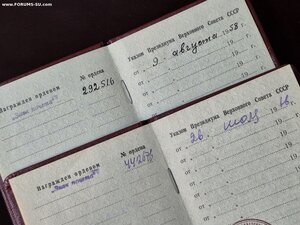 © www.FORUMS-SU.com
Награжден орденом
„Знак почета"
№ ордена
292516
Указом Президиума Верховного Совета СССР
от 9 августа 1958 г.
от 19 г.
от 19 г.
от 19 г.
от 19 г.
Награжден орденом
„Знак почета"
№ ордена
Указом Президиума Верховного Совета СССР
от 26
от 19 г.
от 19 г.
от 19 г.
от
от